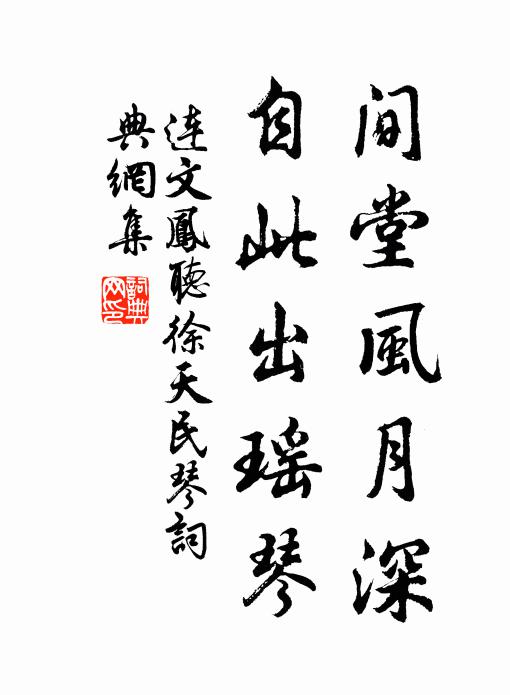 间堂風月深
自此出瑶琴
连文鳳聽徐天民琴詞
典網集
詞典网印